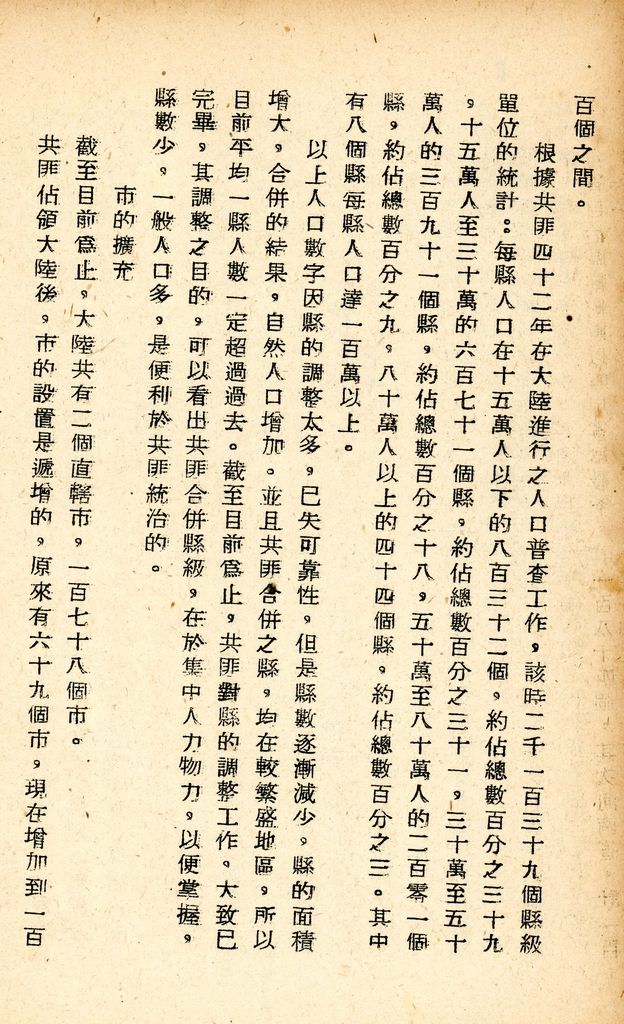 百個之間。
根據共匪四十二年在大陸進行之人口普查工作，該時二千一百三十九個縣級
單位的統計：每縣人口在十五萬人以下的八百三十二個，約佔總數百分之三十九
，十五萬人至三十萬的六百七十一個縣，約佔總數百分之三十一，三十萬至五十
萬人的三百九十一個縣，約佔總數百分之十八，五十萬至八十萬人的二百零一個
縣，約佔總數百分之九，八十萬人以上的四十四個縣，約佔總數百分之三。其中
有八個縣每縣人口達一百萬以上。
以上人口數字因縣的調整太多，已失可靠性，但是縣數逐漸減少，縣的面積
增大，合併的結果，自然人口增加。並且共匪合併之縣，均在較繁盛地區，所以
目前平均一縣人數一定超過過去。截至目前爲止，共匪對縣的調整工作，大致已
完畢，其調整之目的，可以看出共匪合併縣級，在於集中人力物力，以便掌握，
縣數少，一般人口多，是便利於共匪統治的。
市的擴充
截至目前爲止，大陸共有二個直轄市，一百七十八個市。
共匪佔領大陸後，市的設置是遞增的，原來有六十九個市，現在增加到一百